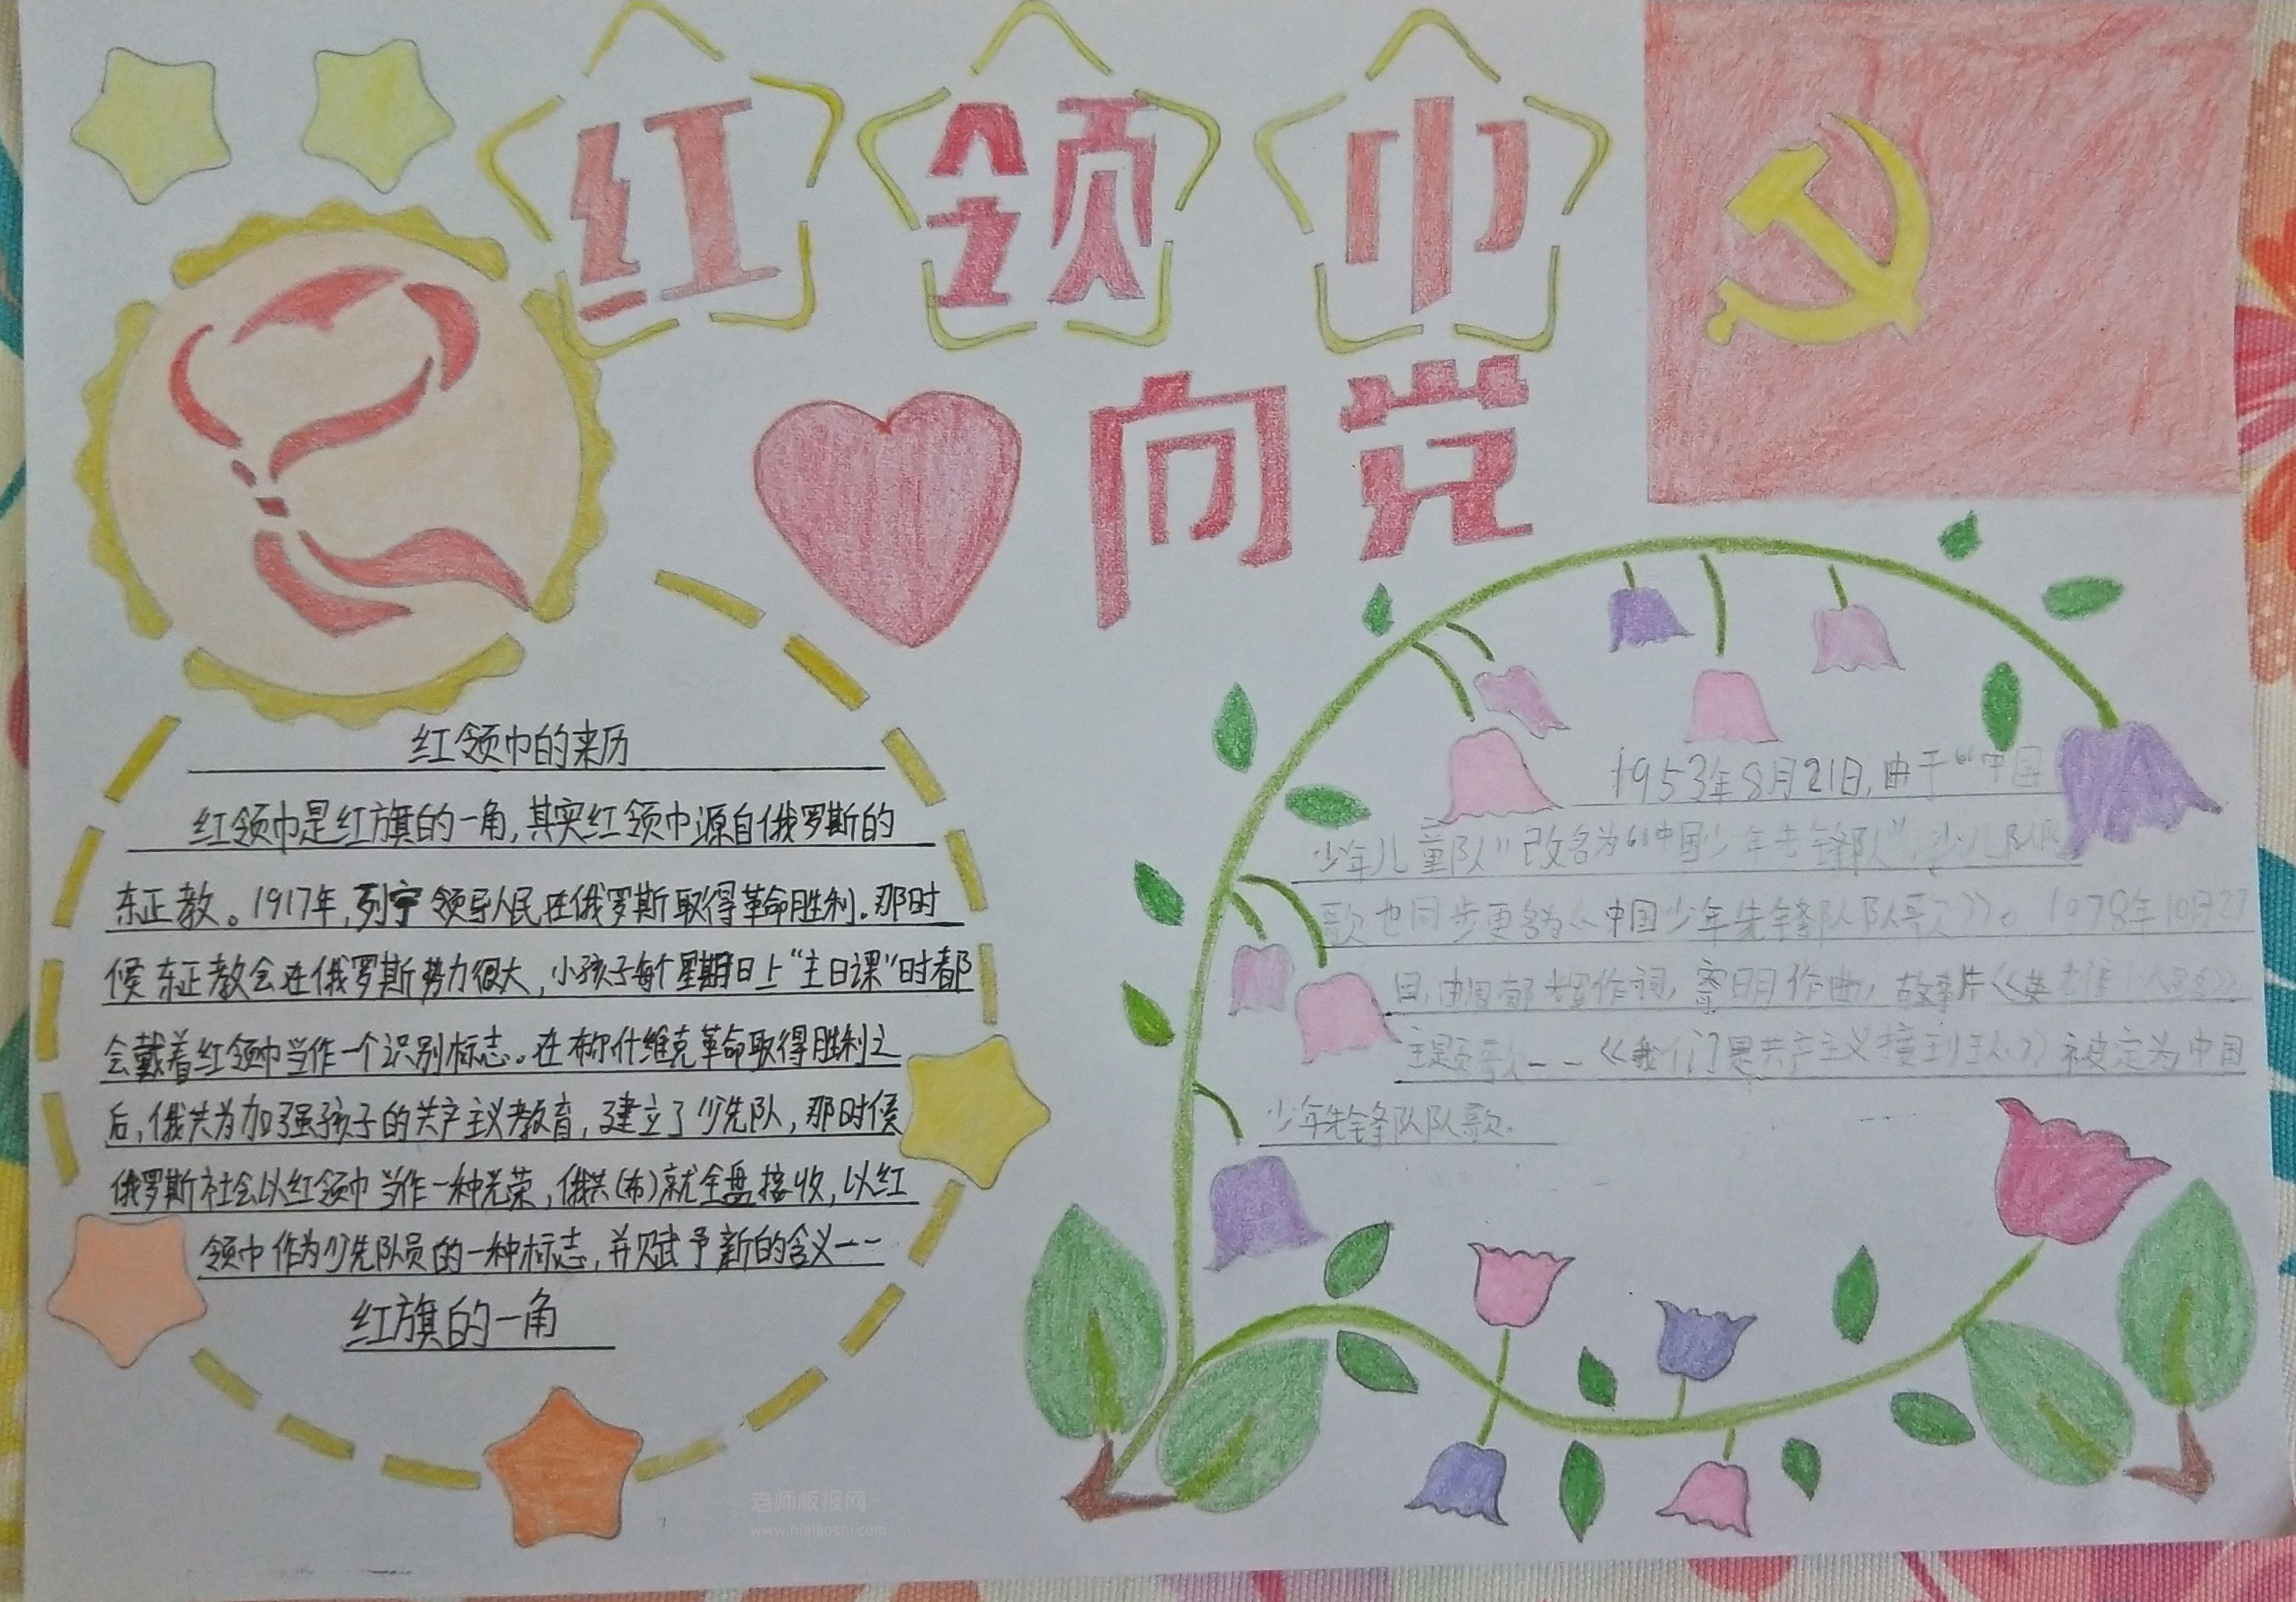 红领巾
向党
红领巾的来历
红领巾是红旗的一角,其实红领巾源自俄罗斯的
东正教。1917年,列宁领导人民在俄罗斯取得革命胜利。那时
候东正教会在俄罗斯势力很大,小孩子每个星期日上“主日课”时都
会戴着红领巾当作一个识别标志。在布尔什维克革命取得胜利之
后,俄共为加强孩子的共产主义教育,建立了少先队,那时候
俄罗斯社会以红领巾当作一种光荣,俄共(布)就全盘接收,以红
领巾作为少先队员的一种标志,并赋予新的含义——
红旗的一角
1953年8月21日,由于“中国
少年儿童队”改名为“中国少年先锋队”,少儿队队
歌也同步更名为《中国少年先锋队队歌》。1978年10月27
日,由周郁辉作词,寄明作曲,故事片《英
主题歌——《我们是共产主义接班人》被定为中国
少年先锋队队歌.
老师板报网
www.nielaoshi.com